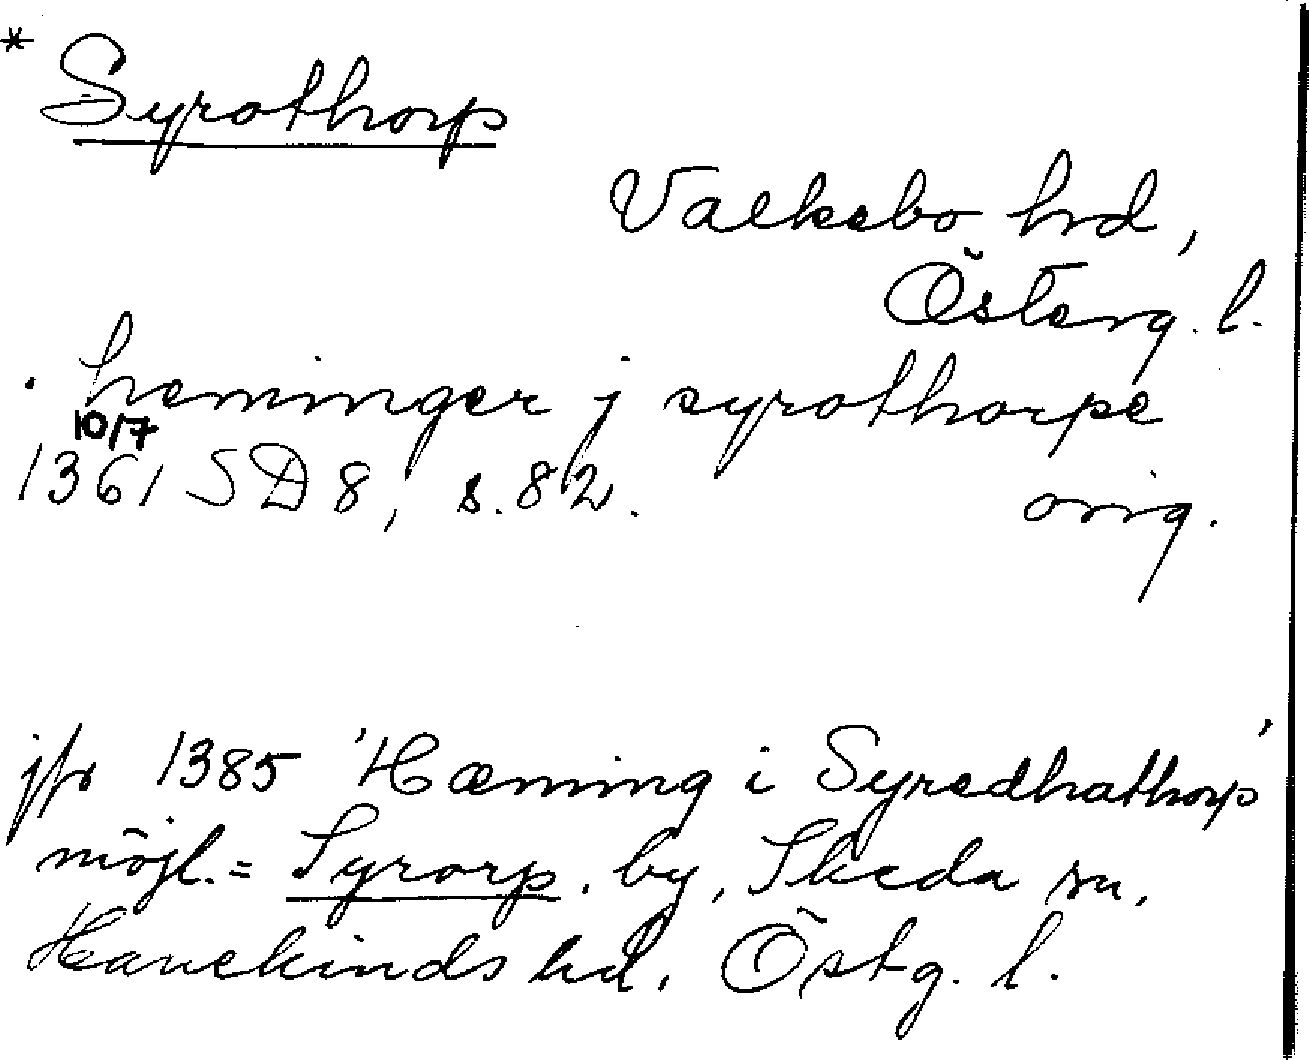 * Syrothorp
Valkebo hrd,
Österg. l.
. heminger j syrothorpe
10/7
1361 SD 8, s. 82. orig.
jfr 1385 'Hæming i Syredhathorp'
möjl. = Syrorp. by, Skeda sn,
Hanekinds hd, Östg. l.